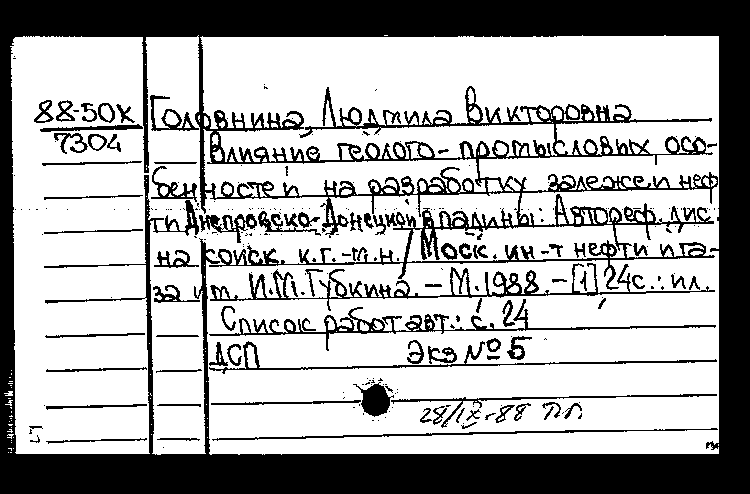 88-50к Головнина, Людмила Викторовна
7304 Влияние геолого-промысловых осо-
бенностей на разработку залежей неф
ти Днепровско-Донецкой впадины: Автореф. дис.
на соиск. к.г.-м.н. / Моск. ин-т нефти и га-
за им. И.М. Губкина. – М. 1988. – [1] 24с.: ил.
Список работ авт.: с. 24
ДСП Экз № 5
28/IX-88